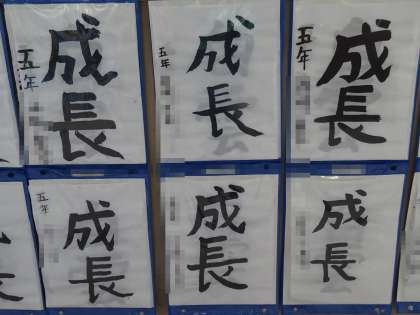 五年
成長
五年
成長
五年
成長
五年
成長
成長
成長